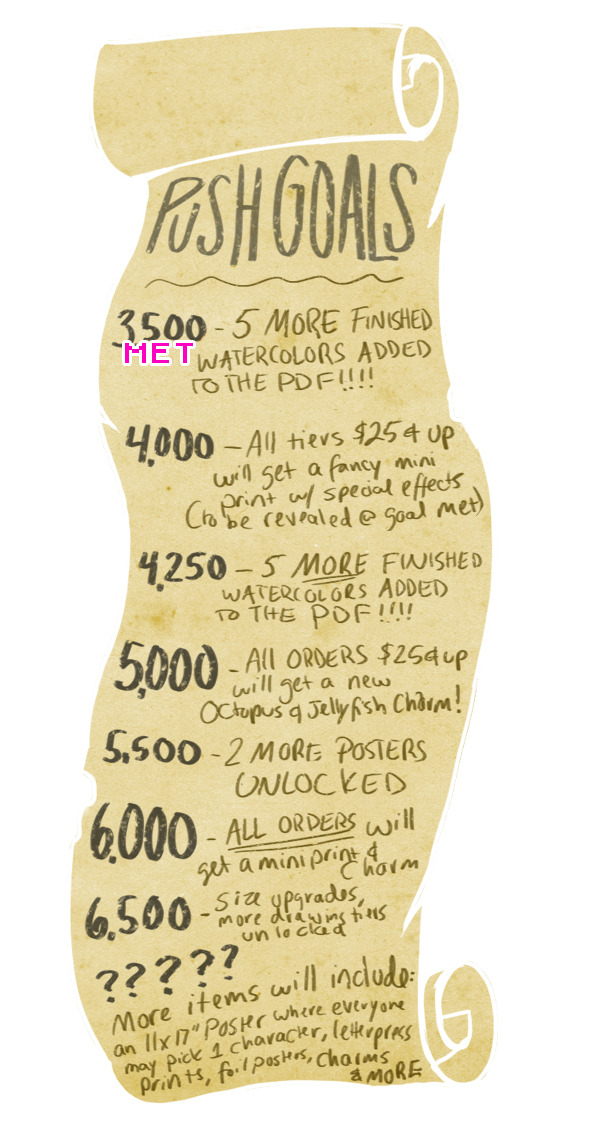 PUSH GOALS
3500 - 5 MORE FINISHED
MET WATERCOLORS ADDED
TO THE PDF!!!!
4,000 - All tiers $25 & up
will get a fancy mini
print w/ special effects
(to be revealed @ goal met)
4,250 - 5 MORE FINISHED
WATERCOLORS ADDED
TO THE PDF!!!!
5,000 - All ORDERS $25 & up
will get a new
Octopus & Jellyfish Charm!
5,500 - 2 MORE POSTERS
UNLOCKED
6,000 - ALL ORDERS will
get a mini print &
Charm
6,500 - Size upgrades,
more drawing tiers
unlocked
?????
More items will include:
an 11x17" Poster where everyone
may pick 1 character, letterpress
prints, foil posters, charms
& MORE